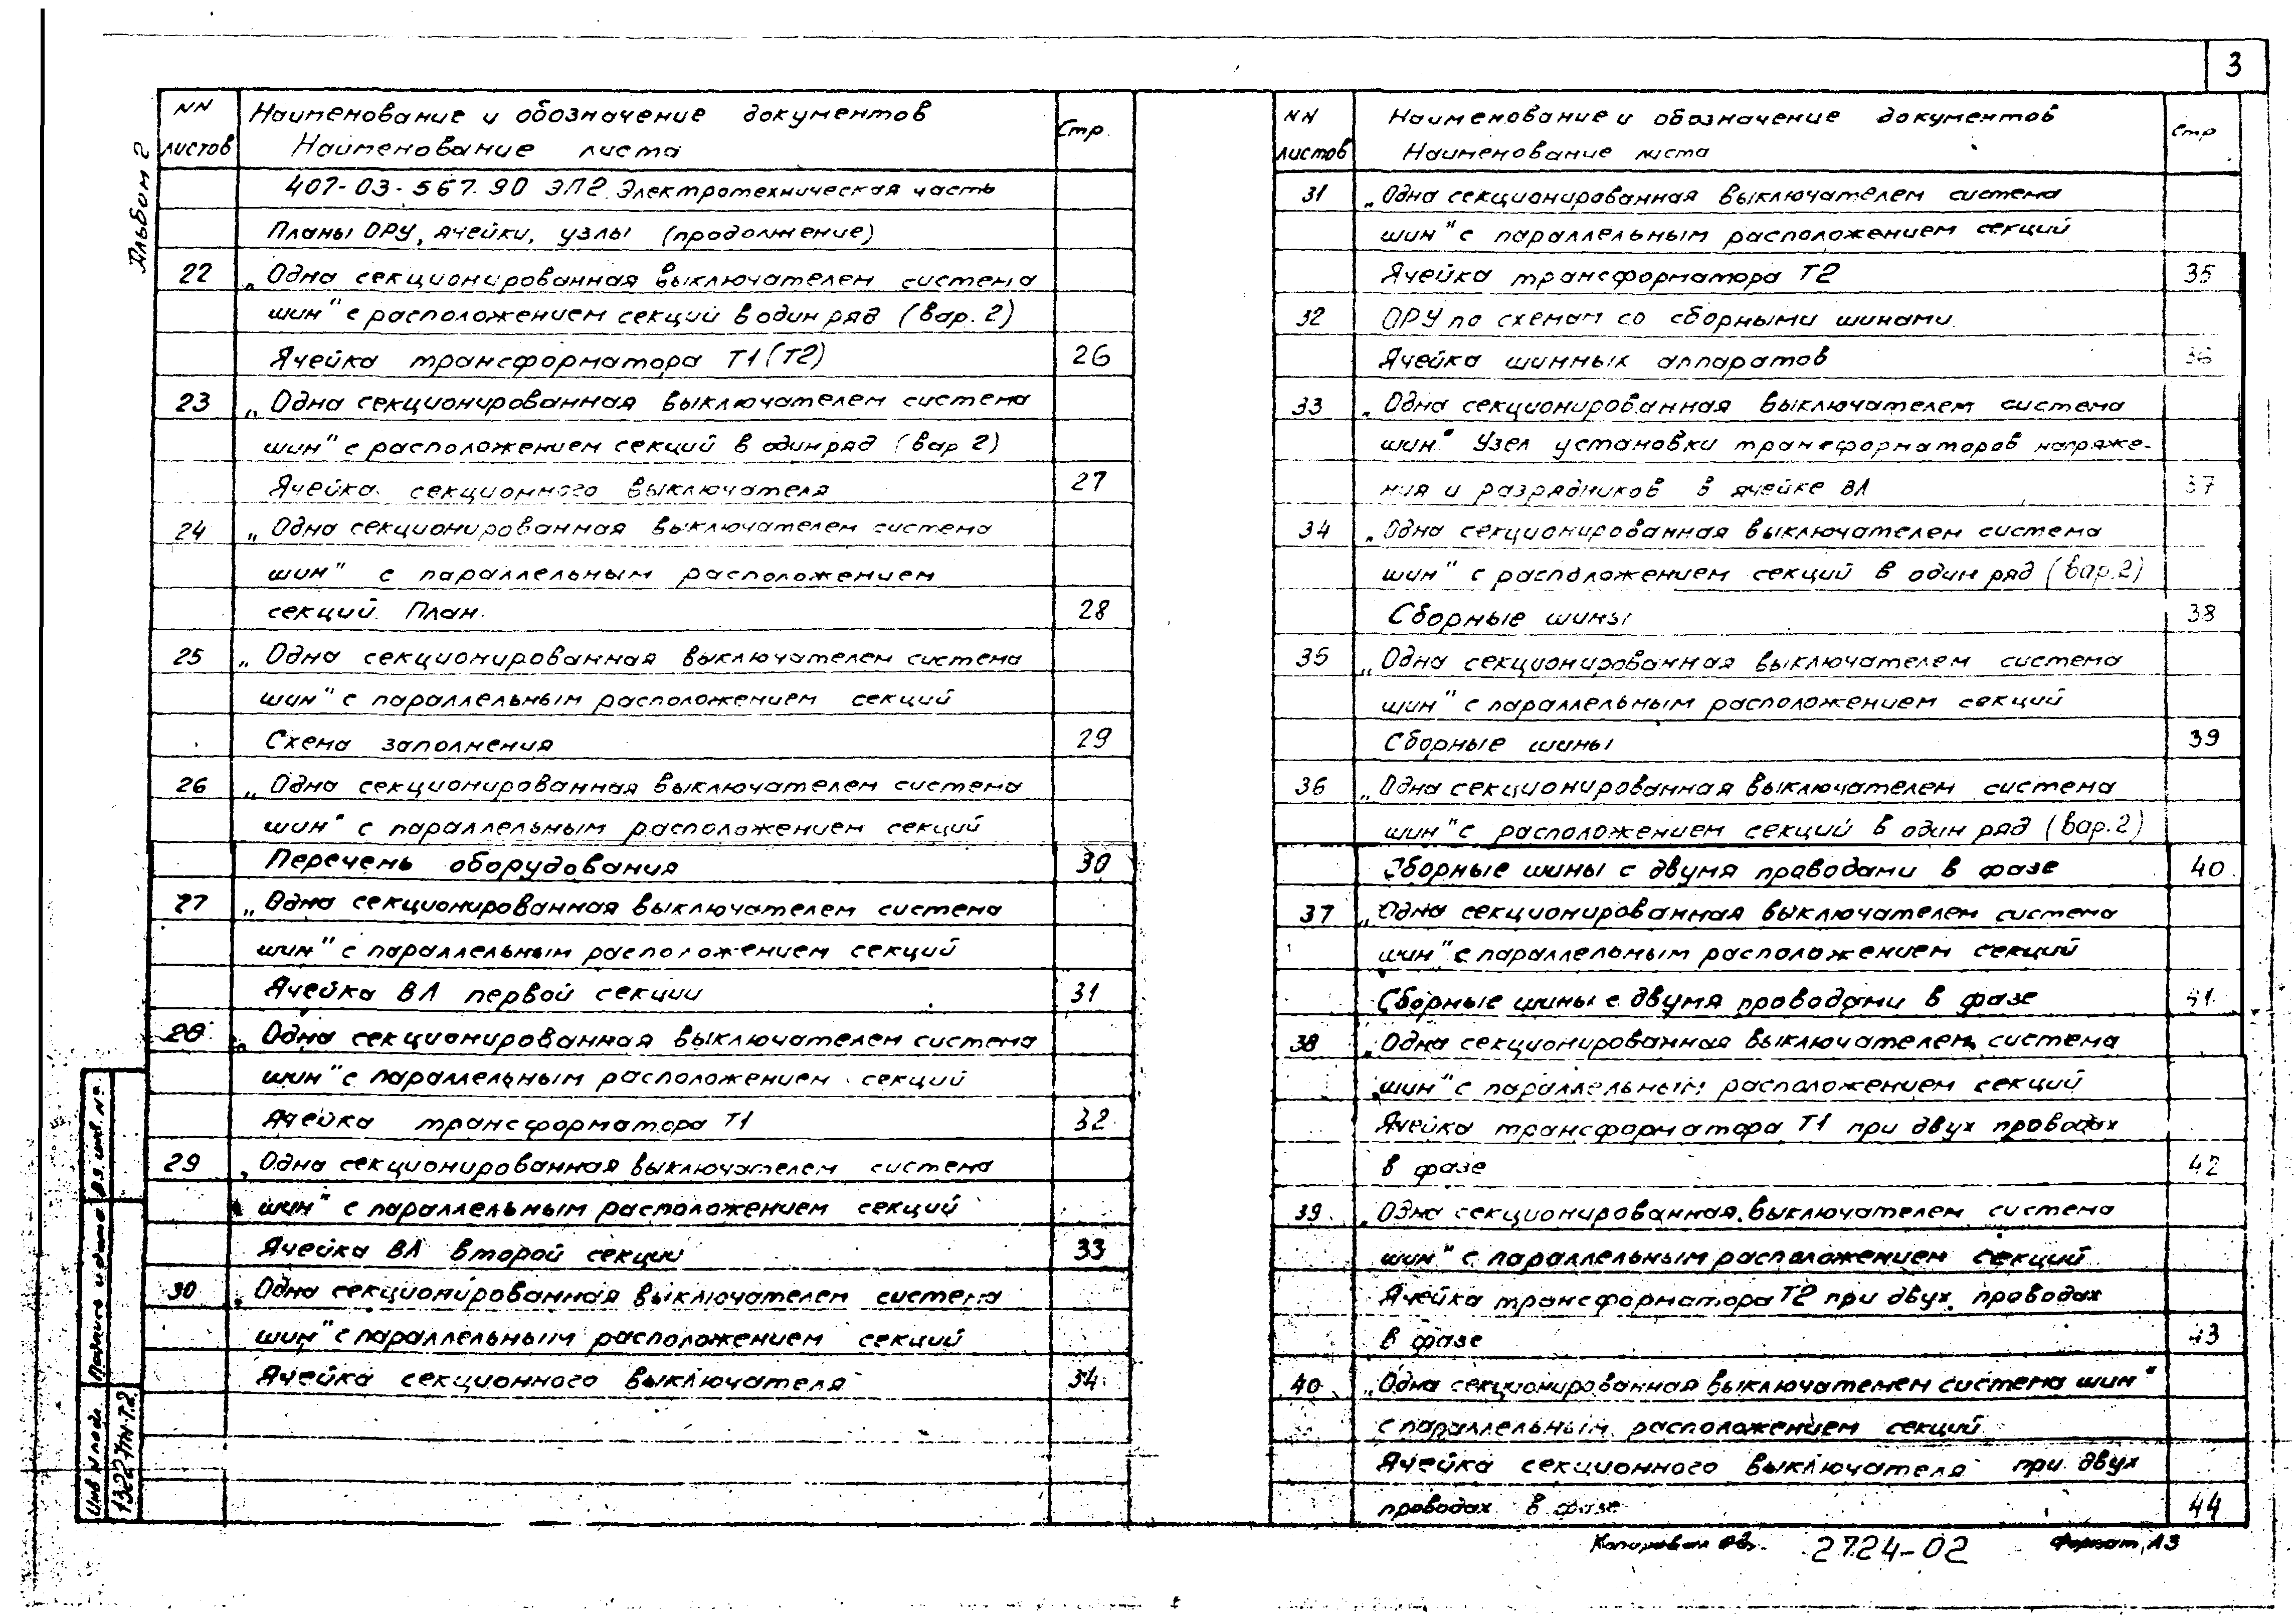 3
Альбом 2
NN листов
Наименование и обозначение документов
Наименование листа
Стр.
407-03-567.90 ЭП2. Электротехническая часть
Планы ОРУ, ячейки, узлы (продолжение)
22 „Одна секционированная выключателем система
шин" с расположением секций в один ряд (вар. 2)
Ячейка трансформатора Т1 (Т2) 26
23 „Одна секционированная выключателем система
шин" с расположением секций в один ряд (вар 2)
Ячейка секционного выключателя 27
24 „Одна секционированная выключателем система
шин" с параллельным расположением
секций. План. 28
25 „Одна секционированная выключателем система
шин" с параллельным расположением секций
Схема заполнения 29
26 „Одна секционированная выключателем система
шин" с параллельным расположением секций
Перечень оборудования 30
27 „Одна секционированная выключателем система
шин" с параллельным расположением секций
Ячейка ВЛ первой секции 31
28 „Одна секционированная выключателем система
шин" с параллельным расположением секций
Ячейка трансформатора Т1 32
29 „Одна секционированная выключателем система
шин" с параллельным расположением секций
Ячейка ВЛ второй секции 33
30 „Одна секционированная выключателем система
шин" с параллельным расположением секций
Ячейка секционного выключателя 34
NN листов
Наименование и обозначение документов
Наименование листа
Стр
31 „Одна секционированная выключателем система
шин" с параллельным расположением секций
Ячейка трансформатора Т2 35
32 ОРУ по схемам со сборными шинами.
Ячейка шинных аппаратов 36
33 „Одна секционированная выключателем система
шин". Узел установки трансформаторов напряже-
ния и разрядников в ячейке ВЛ 37
34 „Одна секционированная выключателем система
шин" с расположением секций в один ряд (вар.2)
Сборные шины 38
35 „Одна секционированная выключателем система
шин" с параллельным расположением секций
Сборные шины 39
36 „Одна секционированная выключателем система
шин" с расположением секций в один ряд (вар.2)
Сборные шины с двумя проводами в фазе 40
37 „Одна секционированная выключателем система
шин" с параллельным расположением секций
Сборные шины с двумя проводами в фазе 41
38 „Одна секционированная выключателем система
шин" с параллельным расположением секций
Ячейка трансформатора Т1 при двух проводах
в фазе 42
39 „Одна секционированная выключателем система
шин" с параллельным расположением секций
Ячейка трансформатора Т2 при двух проводах
в фазе 43
40 „Одна секционированная выключателем система шин"
с параллельным расположением секций
Ячейка секционного выключателя при двух
проводах в фазе 44
Инв N подл. Подпись и дата Вз. инв. №
Копировал
2724-02
Формат А3